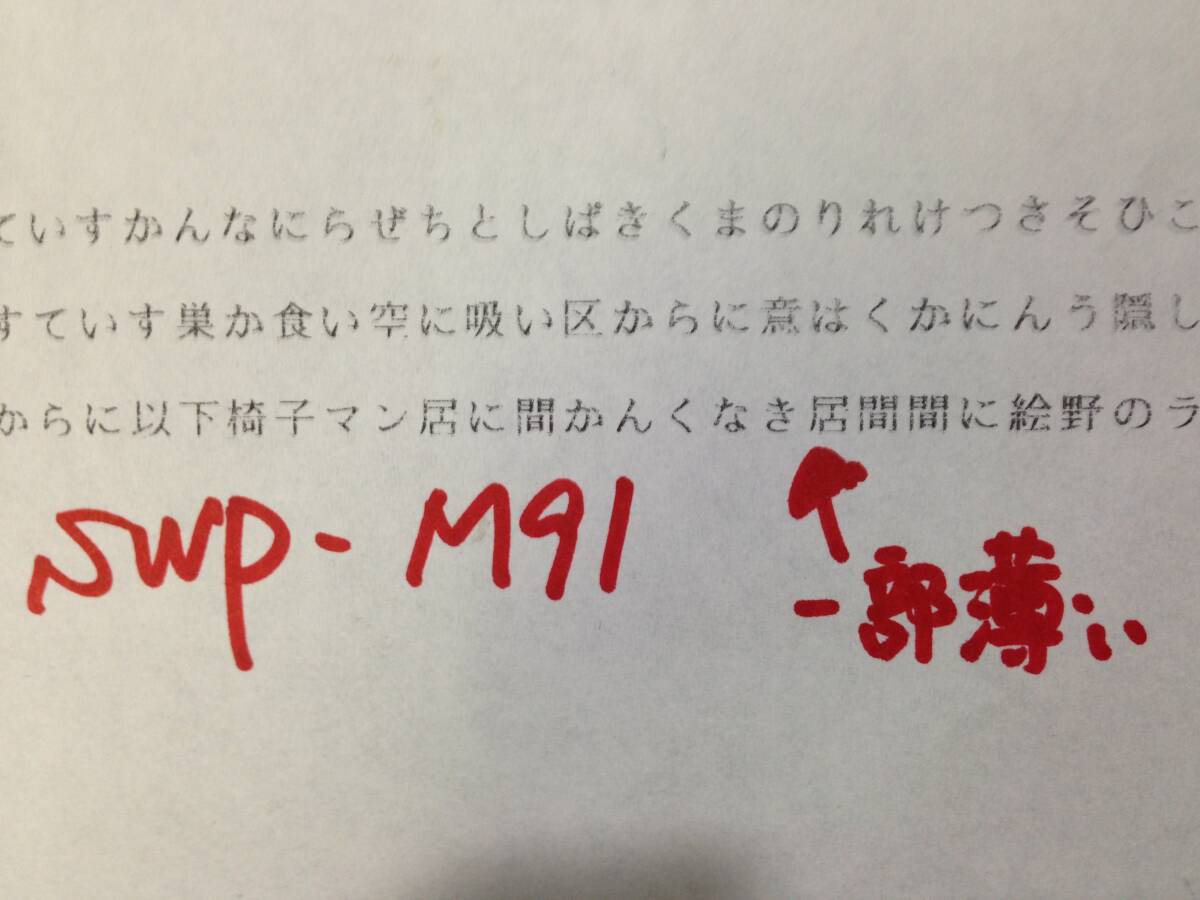 ていすかんなにらぜちとしぱきくまのりれけつさそひこ
すていす巣か食い空に吸い区からに意はくかにんう隠し
からに以下椅子マン居に間かんくなき居間間に絵野のラ
SWP-M91
↑
一部薄い